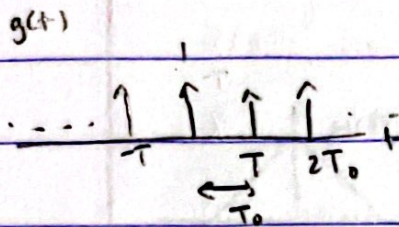 g(t)
1
.... -T T 2T₀ . t
T₀